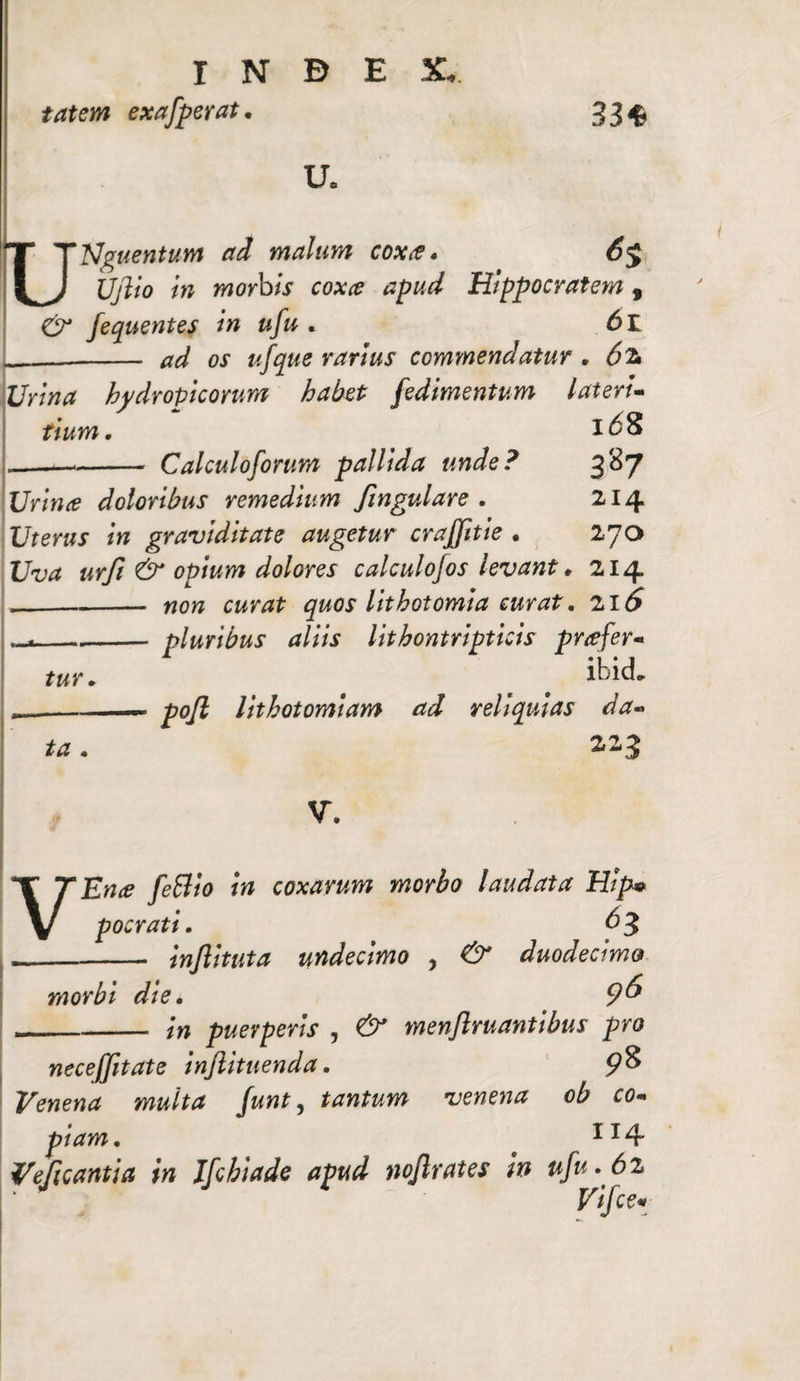 INDEX.
tatem exaſperat. 334
U.
UNguentum ad malum coxæ. 65
Uſtio in morbis coxæ apud Hippocratem,
& ſequentes in uſu. 61
——— ad os uſque rarius commendatur. 62
Urina hydropicorum habet ſedimentum lateri-
tium. 168
——— Calculoſorum pallida unde? 387
Urinæ doloribus remedium ſingulare. 214
Uterus in graviditate augetur craſſitie. 270
Uva urſi & opium dolores calculoſos levant. 214
——— non curat quos lithotomia curat. 216
——— pluribus aliis lithontripticis præfer-
tur. ibid.
——— poſt lithotomiam ad reliquias da-
ta. 223
V.
VEnæ ſectio in coxarum morbo laudata Hip-
pocrati. 63
——— inſtituta undecimo, & duodecimo
morbi die. 96
——— in puerperis, & menſtruantibus pro
neceſſitate inſtituenda. 98
Venena multa ſunt, tantum venena ob co-
piam. 114
Veſicantia in Iſchiade apud noſtrates in uſu. 62
Viſce-